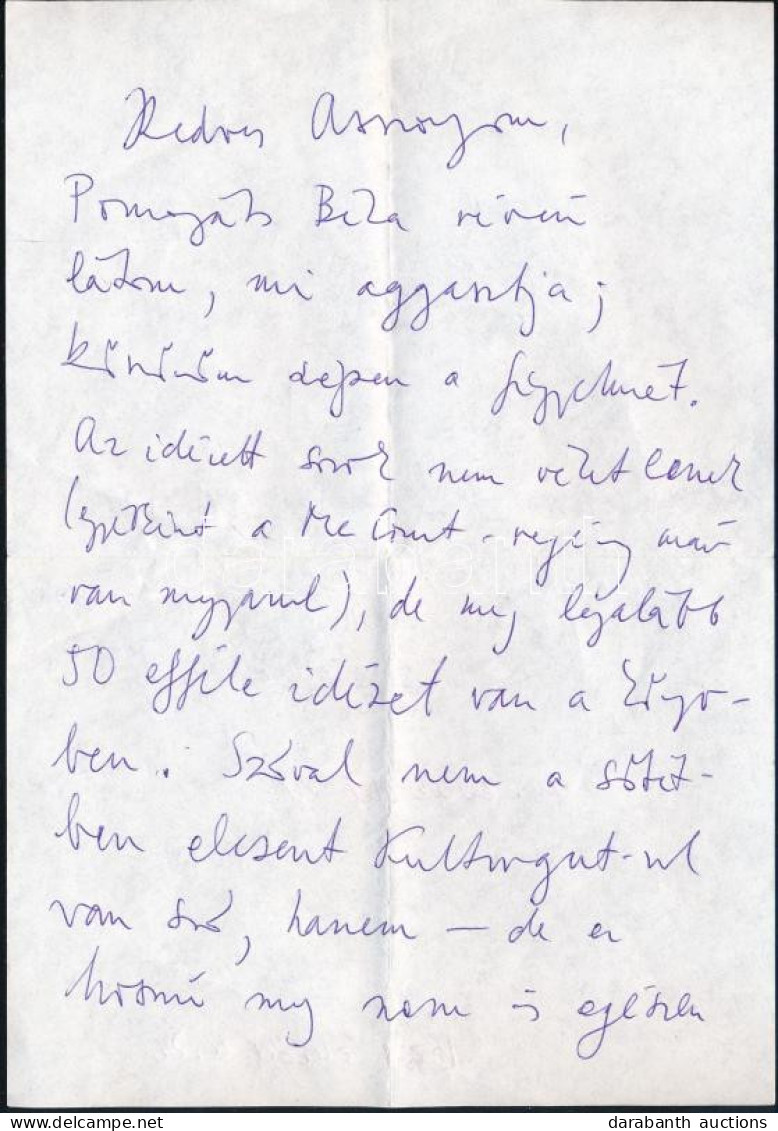 Kedves Asszonyom,
Pomogáts Béla révén
látom, mi aggasztja;
köszönöm szépen a figyelmet.
Az idézett sorok nem véletlenek
(egyébként a McCourt-regény már
van magyarul), de még legalább
50 efféle idézet van a könyv-
ben. Szóval nem a sötét-
ben elcsent Kulturgut-ról
van szó, hanem — de ez
hosszú meg nem is egészen
darabanth auctions